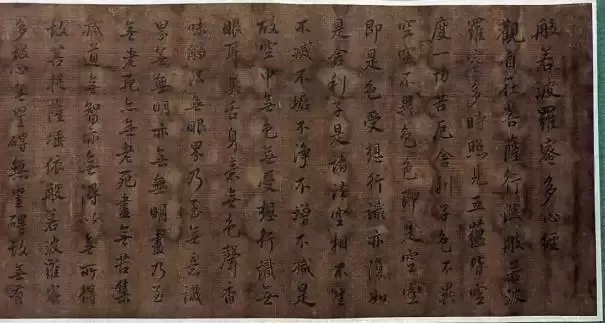 般若波羅密多心經
觀自在菩薩行深般若波
羅密多時照見五蘊皆空
度一切苦厄舍利子色不異
空空不異色色即是空空
即是色受想行識亦復如
是舍利子是諸法空相不生
不滅不垢不净不增不減是
故空中無色無受想行識無
眼耳鼻舌身意無色聲香
味觸法無眼界乃至無意識
界無無明亦無無明盡乃至
無老死亦無老死盡無苦集
滅道無智亦無得以無所得
故菩提薩埵依般若波羅密
多故心無罣礙無罣礙故無有